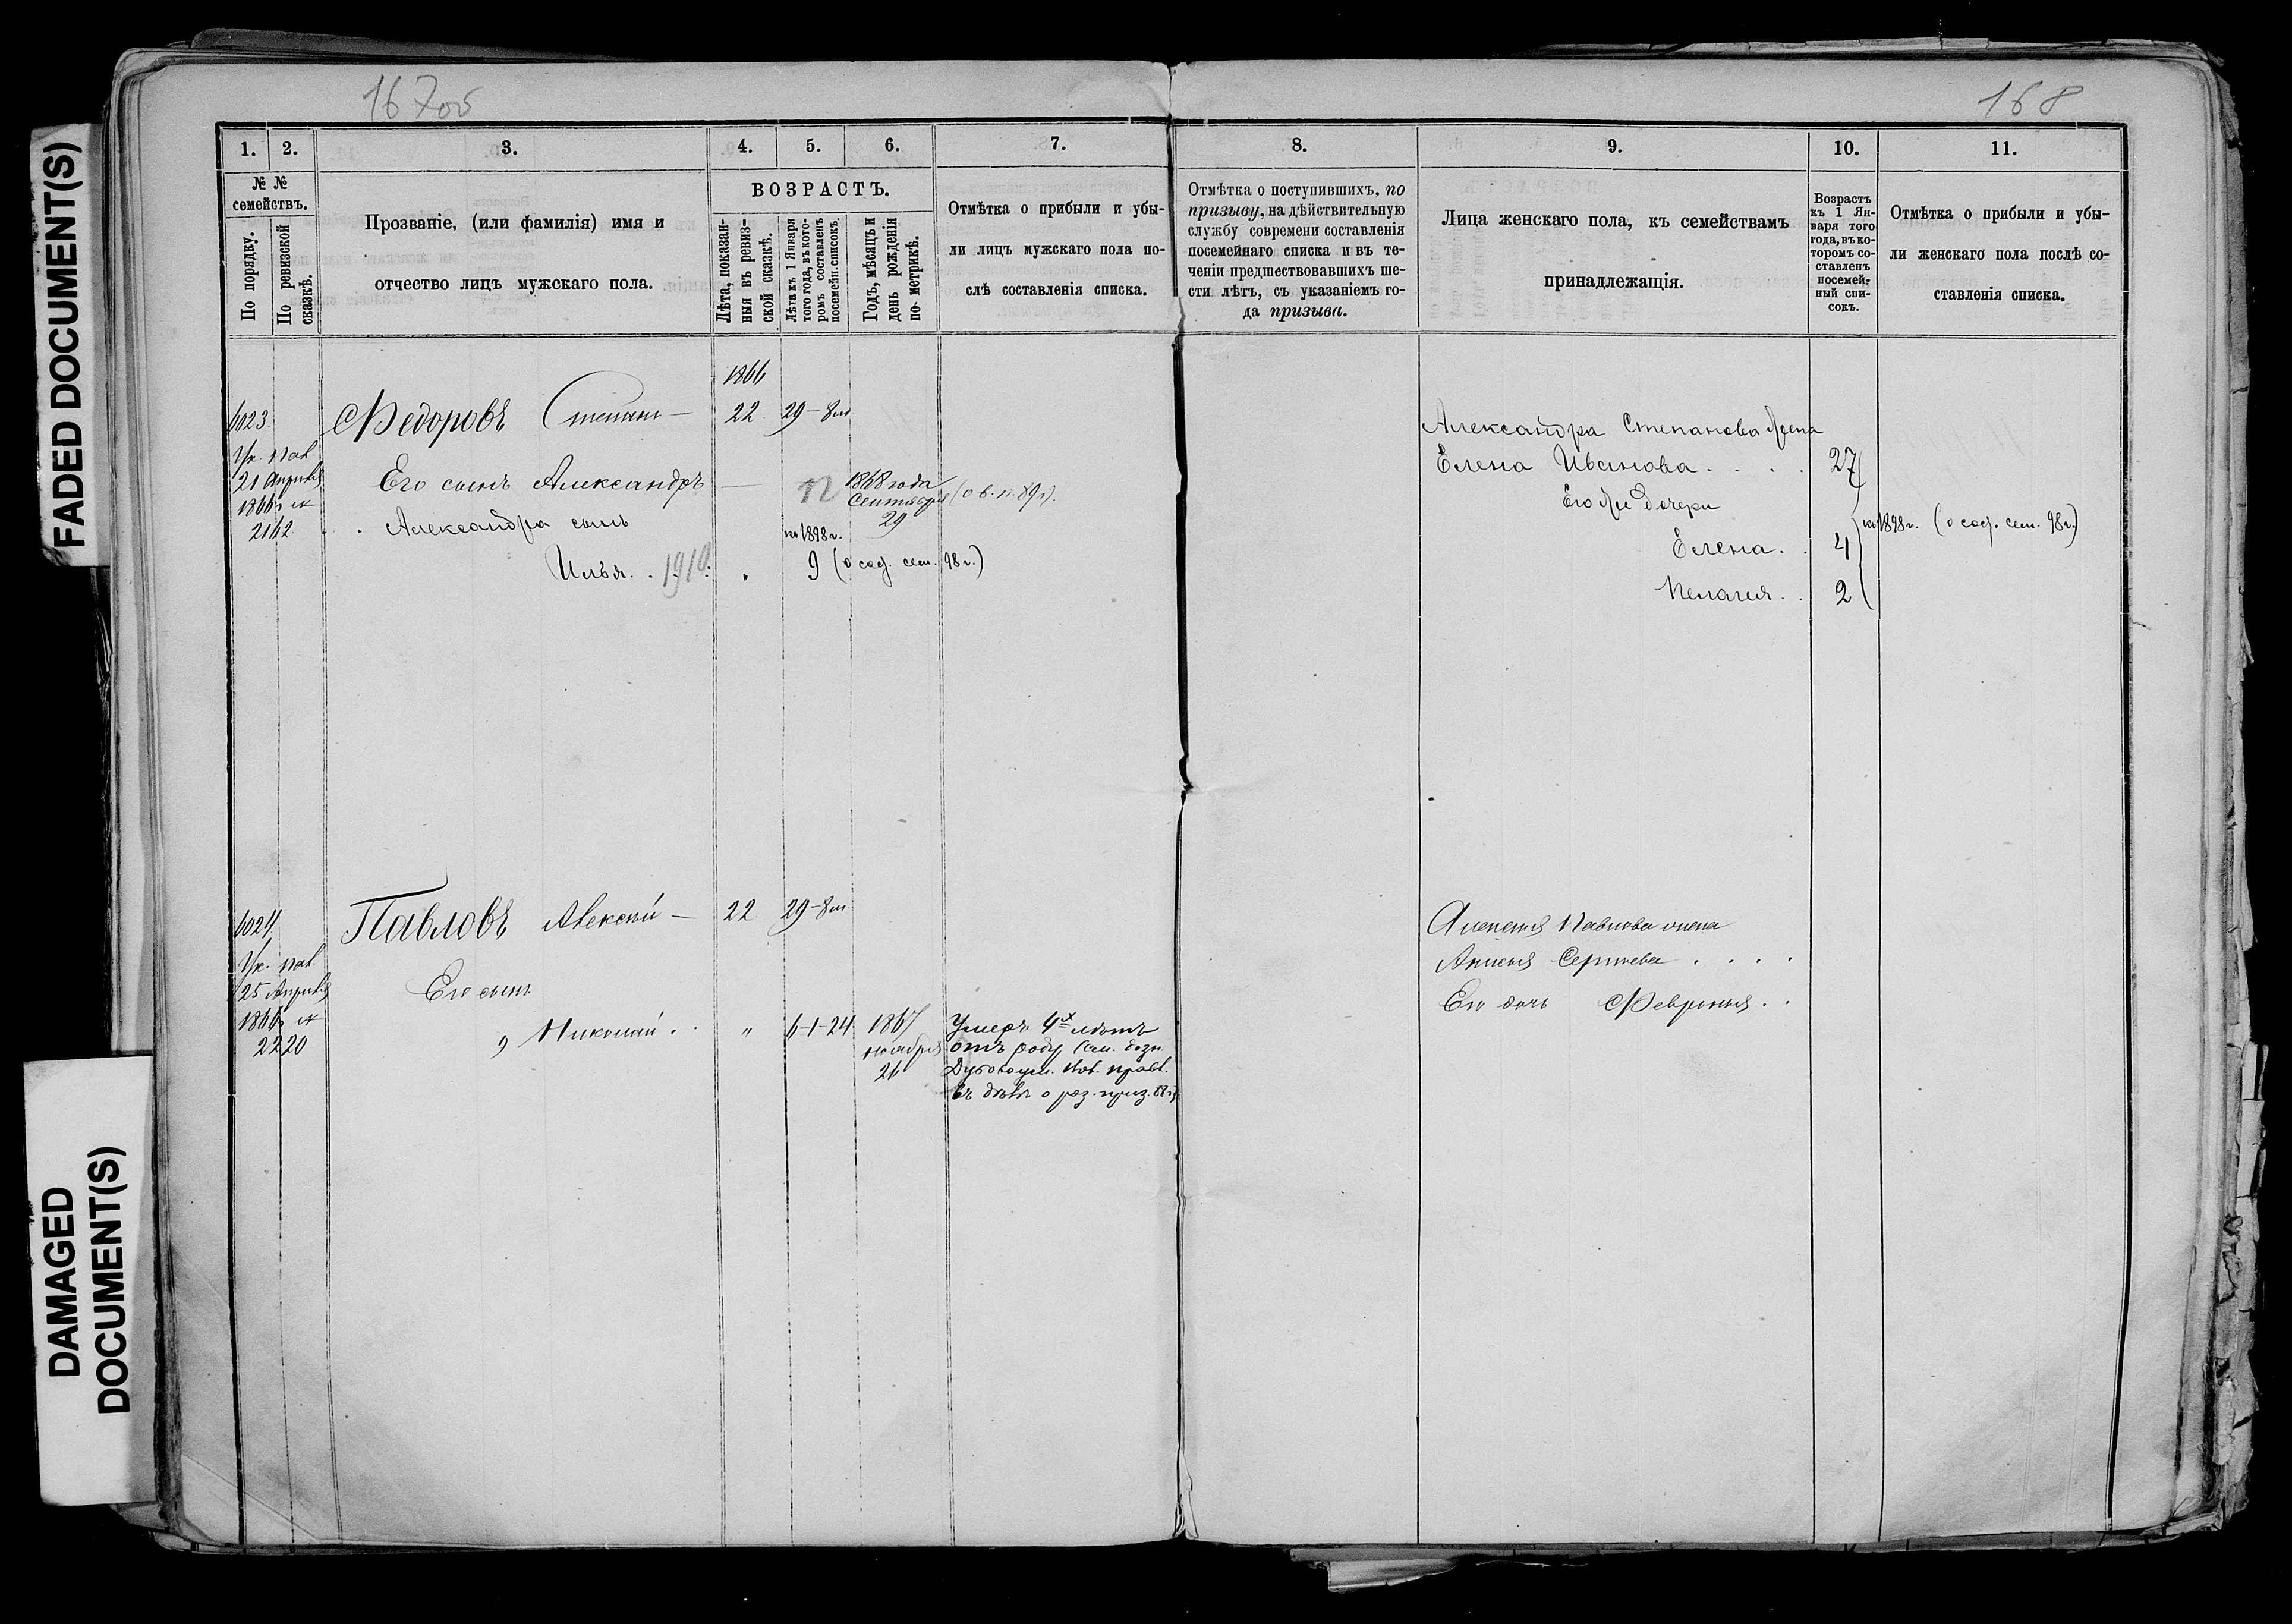 FADED DOCUMENT(S)
DAMAGED
DOCUMENT(S)
167об
168
1. 2. 3. 4. 5. 6. 7. 8. 9. 10. 11.
№ №
семействъ.
По порядку.
По ревизской
сказкѣ.
Прозваніе, (или фамилія) имя и
отчество лицъ мужскаго пола.
ВОЗРАСТЪ.
Лѣта, показан-
ныя въ ревиз-
ской сказкѣ.
Лѣта къ 1 Января
того года, въ кото-
ромъ составленъ
посемейн. списокъ.
Годъ, мѣсяцъ и
день рожденія
по метрикѣ.
Отмѣтка о прибыли и убы-
ли лицъ мужскаго пола по-
слѣ составленія списка.
Отмѣтка о поступившихъ, по
призыву, на дѣйствительную
службу современи составленія
посемейнаго списка и въ те-
ченіи предшествовавшихъ ше-
сти лѣтъ, съ указаніемъ го-
да призыва.
Лица женскаго пола, къ семействамъ
принадлежащія.
Возрастъ
къ 1 Ян-
варя того
года, въ ко-
торомъ со-
ставленъ
посемей-
ный спи-
сокъ.
Отмѣтка о прибыли и убы-
ли женскаго пола послѣ со-
ставленія списка.
1866
6023. Федоровъ Степанъ — 22. 29-8м
Ук. пал
21 Апрѣля
1866 г №
2162
Его сынъ Александръ — 12 1868 года
Сентября
29
(о в. п. 89 г.)
Александра сынъ
Илья . . 1910. " 9
на 1898 г.
(о соф. сем. 98 г.)
Александра Степанова жена
Елена Иванова . . . . 27
Его же дочери
Елена . . 4
Пелагея . . 2
на 1898 г. (о соф. сем. 98 г.)
6024 Павловъ Алексѣй — 22 29-8м
Ук. пал.
25 Апрѣля
1866 г №
2220
Его сынъ
" Николай . . " 6-1-24 1867
ноября
26
Умеръ 4х лѣтъ
отъ роду
въ дѣлѣ о
Алексѣя Павлова жена
Анисья Сергѣева . . . .
Его дочь Февронья . .